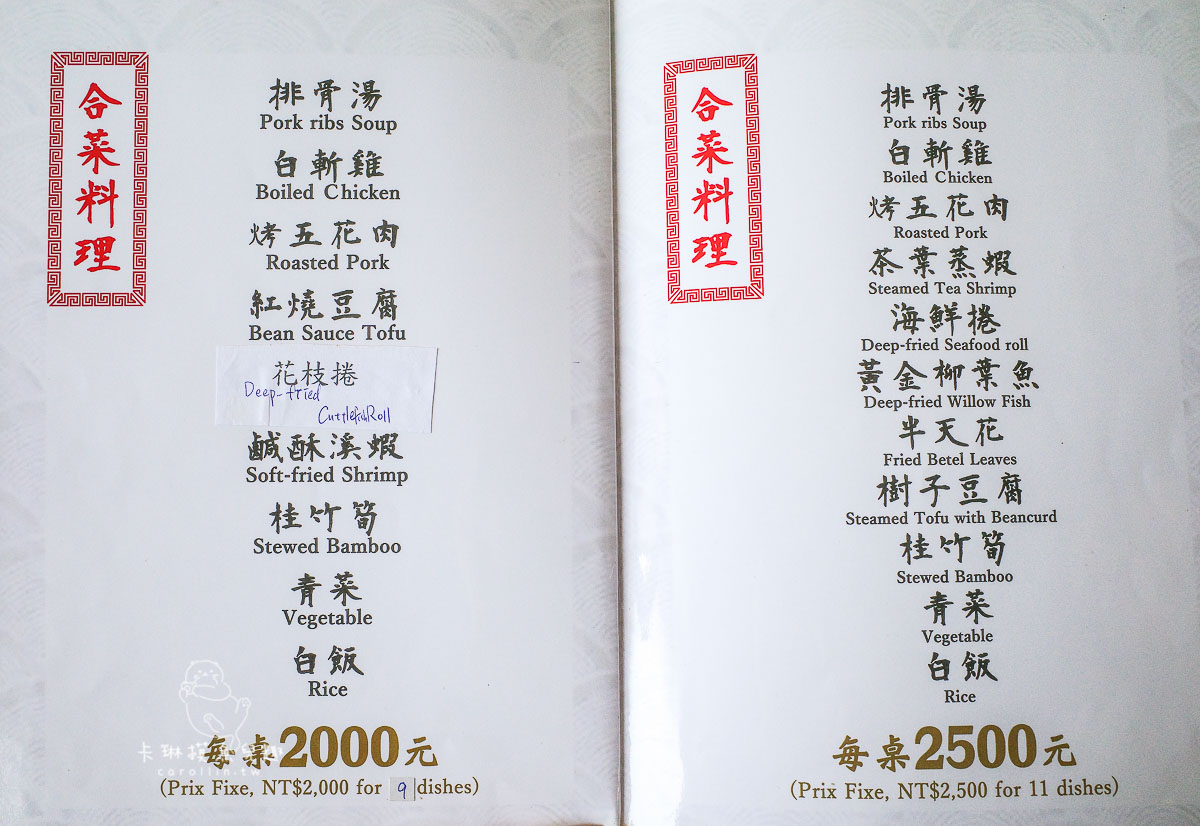 合菜料理
排骨湯
Pork ribs Soup
白斬雞
Boiled Chicken
烤五花肉
Roasted Pork
紅燒豆腐
Bean Sauce Tofu
花枝捲
Deep-fried
CuttlefishRoll
鹹酥溪蝦
Soft-fried Shrimp
桂竹筍
Stewed Bamboo
青菜
Vegetable
白飯
Rice
每桌2000元
(Prix Fixe, NT$2,000 for 9 dishes)
caroliin.tw
合菜料理
排骨湯
Pork ribs Soup
白斬雞
Boiled Chicken
烤五花肉
Roasted Pork
茶葉蒸蝦
Steamed Tea Shrimp
海鮮捲
Deep-fried Seafood roll
黃金柳葉魚
Deep-fried Willow Fish
半天花
Fried Betel Leaves
樹子豆腐
Steamed Tofu with Beancurd
桂竹筍
Stewed Bamboo
青菜
Vegetable
白飯
Rice
每桌2500元
(Prix Fixe, NT$2,500 for 11 dishes)